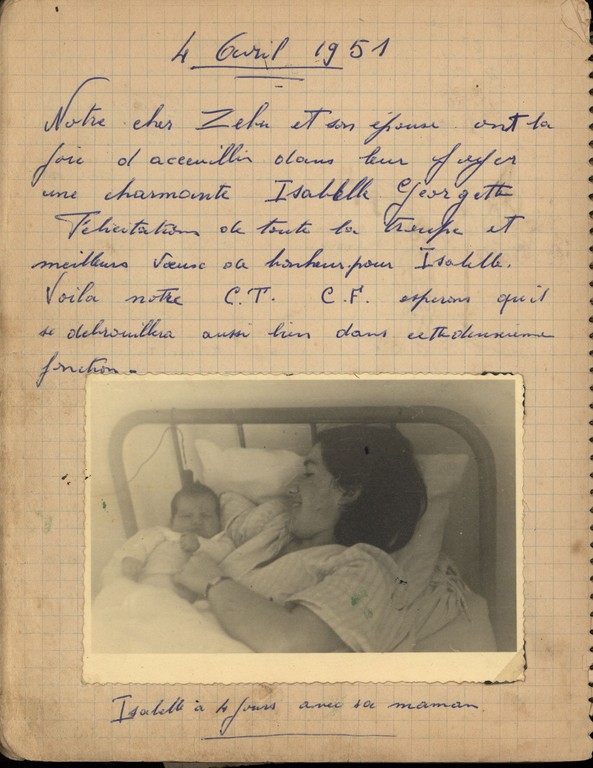 4 Avril 1951
Notre cher Zebu et son épouse ont la
joie d acceuillir dans leur foyer
une charmante Isabelle Georgette
Félicitations de toute la troupe et
meilleurs voeux de bonheur pour Isabelle.
Voila notre C.T. C.F. esperons qu'il
se debrouillera aussi bien dans cette deuxieme
fonction.
Isabelle à 4 jours avec sa maman